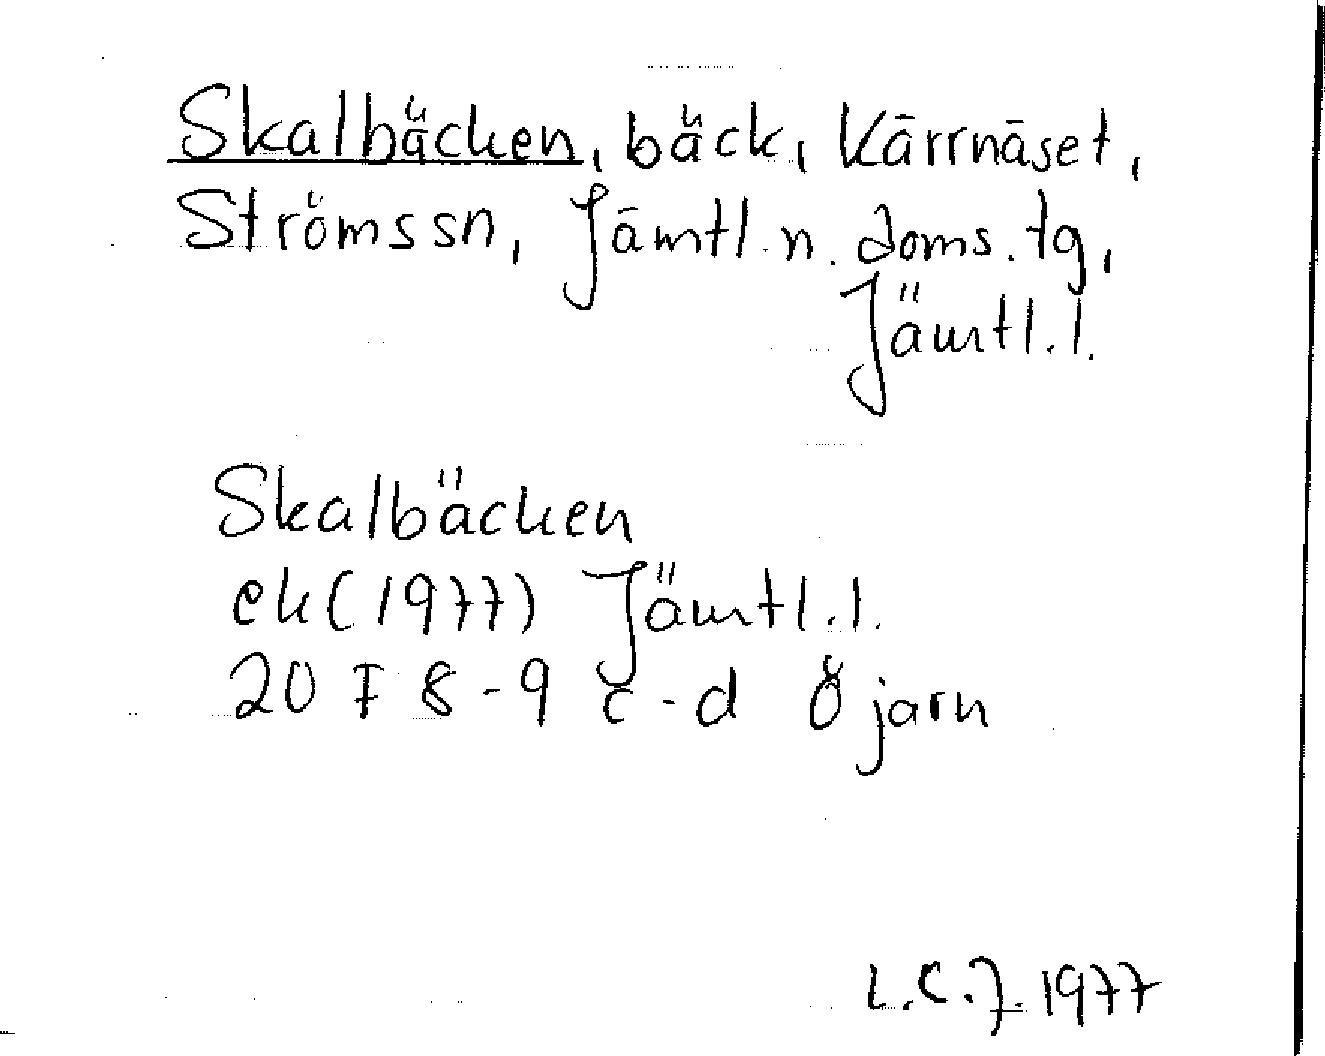 Skalbäcken, bäck, Kärrnäset,
Ströms sn, Jämtl. n. doms. tg,
Jämtl. l.
Skalbäcken
ek (1977) Jämtl. l.
20 F 8-9 c-d Öjarn
L.C.J. 1977